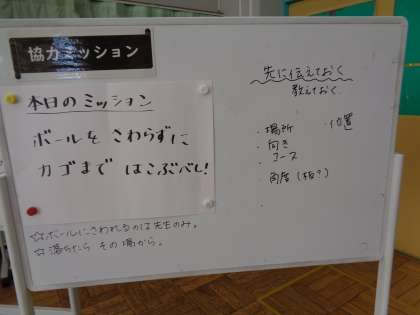 協力ミッション
本日のミッション
ボールを さわらずに
カゴまで はこぶべし!
☆ボールにさわれるのは先生のみ。
☆落ちたら その場から。
先に伝えておく
教えておく
・場所 ・位置
・向き
・コース
・角度(板?)
・